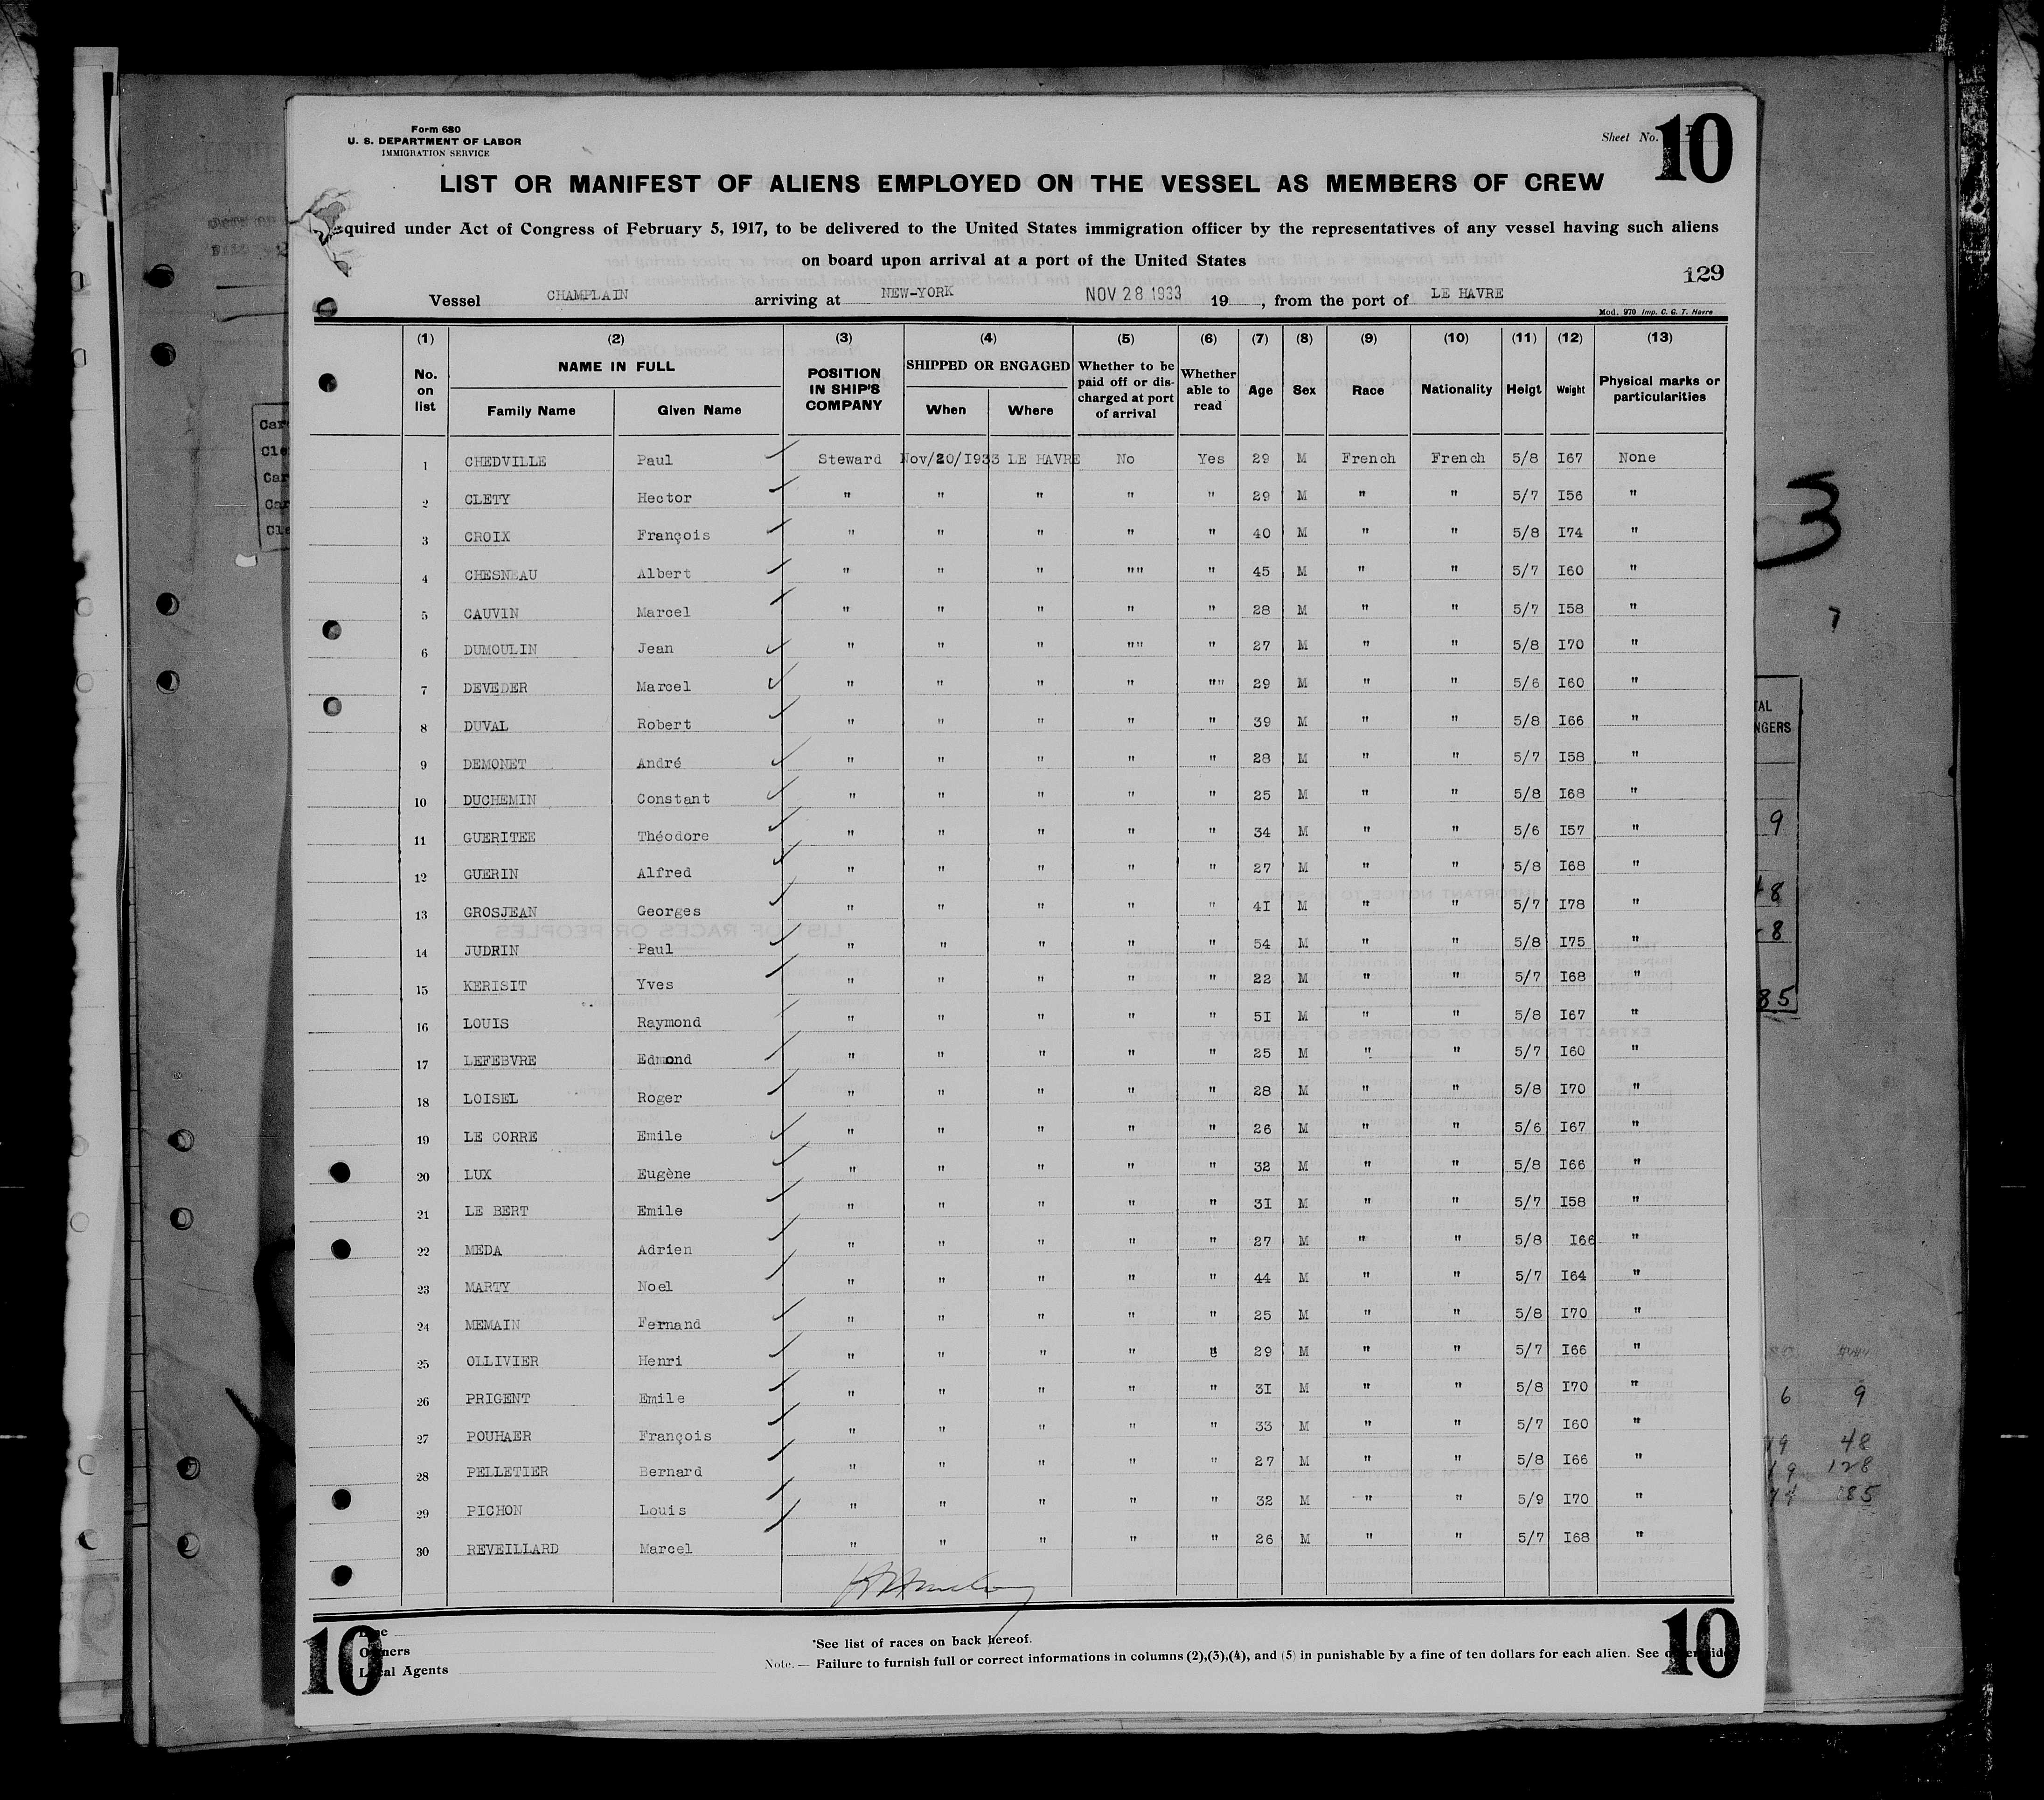 Form 680
U. S. DEPARTMENT OF LABOR
IMMIGRATION SERVICE
Sheet No. 10
LIST OR MANIFEST OF ALIENS EMPLOYED ON THE VESSEL AS MEMBERS OF CREW
quired under Act of Congress of February 5, 1917, to be delivered to the United States immigration officer by the representatives of any vessel having such aliens
on board upon arrival at a port of the United States
129
Vessel CHAMPLAIN arriving at NEW-YORK NOV 28 1933 19 , from the port of LE HAVRE
Mod. 970 Imp. C. G. T. Havre
(1) (2) (3) (4) (5) (6) (7) (8) (9) (10) (11) (12) (13)
No. on list NAME IN FULL Family Name Given Name POSITION IN SHIP'S COMPANY SHIPPED OR ENGAGED When Where Whether to be paid off or discharged at port of arrival Whether able to read Age Sex Race Nationality Heigt Weight Physical marks or particularities
1 CHEDVILLE Paul Steward Nov/20/I933 LE HAVRE No Yes 29 M French French 5/8 I67 None
2 CLETY Hector " " " " " 29 M " " 5/7 I56 "
3 CROIX François " " " " " 40 M " " 5/8 I74 "
4 CHESNEAU Albert " " " "" " 45 M " " 5/7 I60 "
5 CAUVIN Marcel " " " " " 28 M " " 5/7 I58 "
6 DUMOULIN Jean " " " "" " 27 M " " 5/8 I70 "
7 DEVEDER Marcel " " " " "" 29 M " " 5/6 I60 "
8 DUVAL Robert " " " " " 39 M " " 5/8 I66 "
9 DEMONET André " " " " " 28 M " " 5/7 I58 "
10 DUCHEMIN Constant " " " " " 25 M " " 5/8 I68 "
11 GUERITEE Théodore " " " " " 34 M " " 5/6 I57 "
12 GUERIN Alfred " " " " " 27 M " " 5/8 I68 "
13 GROSJEAN Georges " " " " " 4I M " " 5/7 I78 "
14 JUDRIN Paul " " " " " 54 M " " 5/8 I75 "
15 KERISIT Yves " " " " " 22 M " " 5/7 I68 "
16 LOUIS Raymond " " " " " 5I M " " 5/8 I67 "
17 LEFEBVRE Edmond " " " " " 25 M " " 5/7 I60 "
18 LOISEL Roger " " " " " 28 M " " 5/8 I70 "
19 LE CORRE Emile " " " " " 26 M " " 5/6 I67 "
20 LUX Eugène " " " " " 32 M " " 5/8 I66 "
21 LE BERT Emile " " " " " 3I M " " 5/7 I58 "
22 MEDA Adrien " " " " " 27 M " " 5/8 I66 "
23 MARTY Noel " " " " " 44 M " " 5/7 I64 "
24 MEMAIN Fernand " " " " " 25 M " " 5/8 I70 "
25 OLLIVIER Henri " " " " " 29 M " " 5/7 I66 "
26 PRIGENT Emile " " " " " 3I M " " 5/8 I70 "
27 POUHAER François " " " " " 33 M " " 5/7 I60 "
28 PELLETIER Bernard " " " " " 27 M " " 5/8 I66 "
29 PICHON Louis " " " " " 32 M " " 5/9 I70 "
30 REVEILLARD Marcel " " " " " 26 M " " 5/7 I68 "
10
Owners
Local Agents
*See list of races on back hereof.
Note. — Failure to furnish full or correct informations in columns (2),(3),(4), and (5) in punishable by a fine of ten dollars for each alien. See
10
3
NGERS
9
8
8
85
6 9
48
128